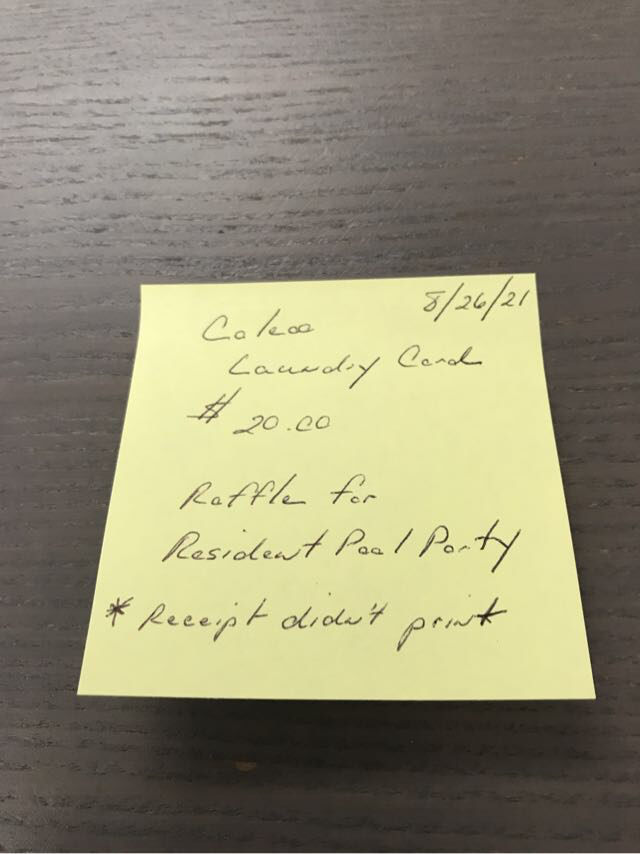 8/26/21
Laundry Card
$20.00
Raffle for
Resident Pool Party
* Receipt didn't print